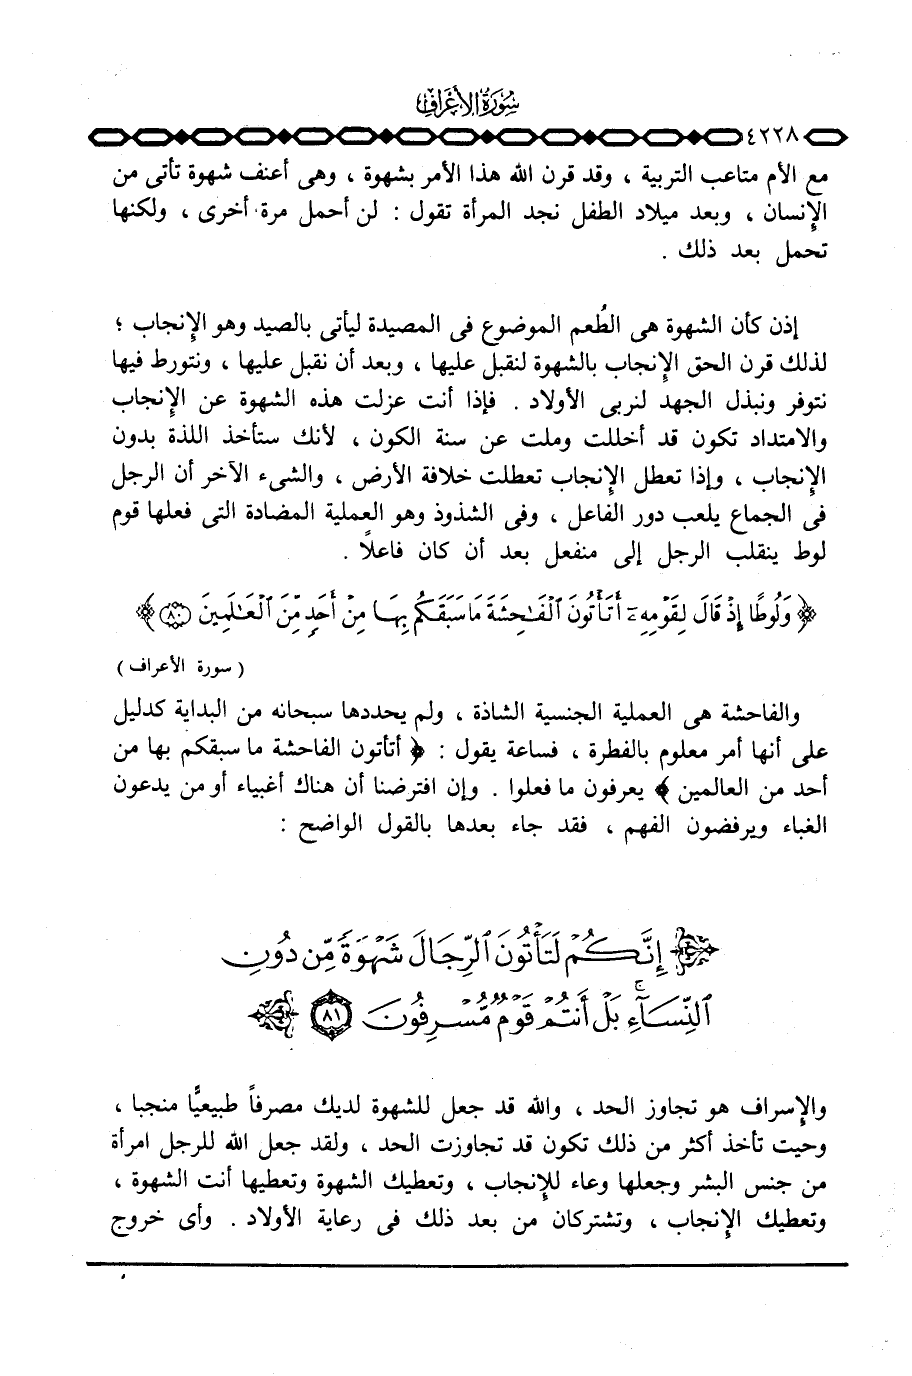 سُورَةُ الأَعْرَافِ
٤٢٢٨
مع الأم متاعب التربية ، وقد قرن الله هذا الأمر بشهوة ، وهى أعنف شهوة تأتى من
الإنسان ، وبعد ميلاد الطفل نجد المرأة تقول : لن أحمل مرة أخرى ، ولكنها
تحمل بعد ذلك .
إذن كأن الشهوة هى الطُعم الموضوع فى المصيدة ليأتى بالصيد وهو الإنجاب ؛
لذلك قرن الحق الإنجاب بالشهوة لنقبل عليها ، وبعد أن نقبل عليها ، ونتورط فيها
نتوفر ونبذل الجهد لنربى الأولاد . فإذا أنت عزلت هذه الشهوة عن الإنجاب
والامتداد تكون قد أخللت وملت عن سنة الكون ، لأنك ستأخذ اللذة بدون
الإنجاب ، وإذا تعطل الإنجاب تعطلت خلافة الأرض ، والشىء الآخر أن الرجل
فى الجماع يلعب دور الفاعل ، وفى الشذوذ وهو العملية المضادة التى فعلها قوم
لوط ينقلب الرجل إلى منفعل بعد أن كان فاعلاً .
﴿ وَلُوطًا إِذْ قَالَ لِقَوْمِهِۦٓ أَتَأْتُونَ ٱلْفَـٰحِشَةَ مَا سَبَقَكُم بِهَا مِنْ أَحَدٍ مِّنَ ٱلْعَـٰلَمِينَ ٨٠ ﴾
( سورة الأعراف )
والفاحشة هى العملية الجنسية الشاذة ، ولم يحددها سبحانه من البداية كدليل
على أنها أمر معلوم بالفطرة ، فساعة يقول : ﴿ أتأتون الفاحشة ما سبقكم بها من
أحد من العالمين ﴾ يعرفون ما فعلوا . وإن افترضنا أن هناك أغبياء أو من يدعون
الغباء ويرفضون الفهم ، فقد جاء بعدها بالقول الواضح :
إِنَّكُمْ لَتَأْتُونَ ٱلرِّجَالَ شَهْوَةً مِّن دُونِ
ٱلنِّسَآءِ ۚ بَلْ أَنتُمْ قَوْمٌ مُّسْرِفُونَ ٨١
والإسراف هو تجاوز الحد ، والله قد جعل للشهوة لديك مصرفاً طبيعيًّا منجبا ،
وحيث تأخذ أكثر من ذلك تكون قد تجاوزت الحد ، ولقد جعل الله للرجل امرأة
من جنس البشر وجعلها وعاء للإنجاب ، وتعطيك الشهوة وتعطيها أنت الشهوة ،
وتعطيك الإنجاب ، وتشتركان من بعد ذلك فى رعاية الأولاد . وأى خروج